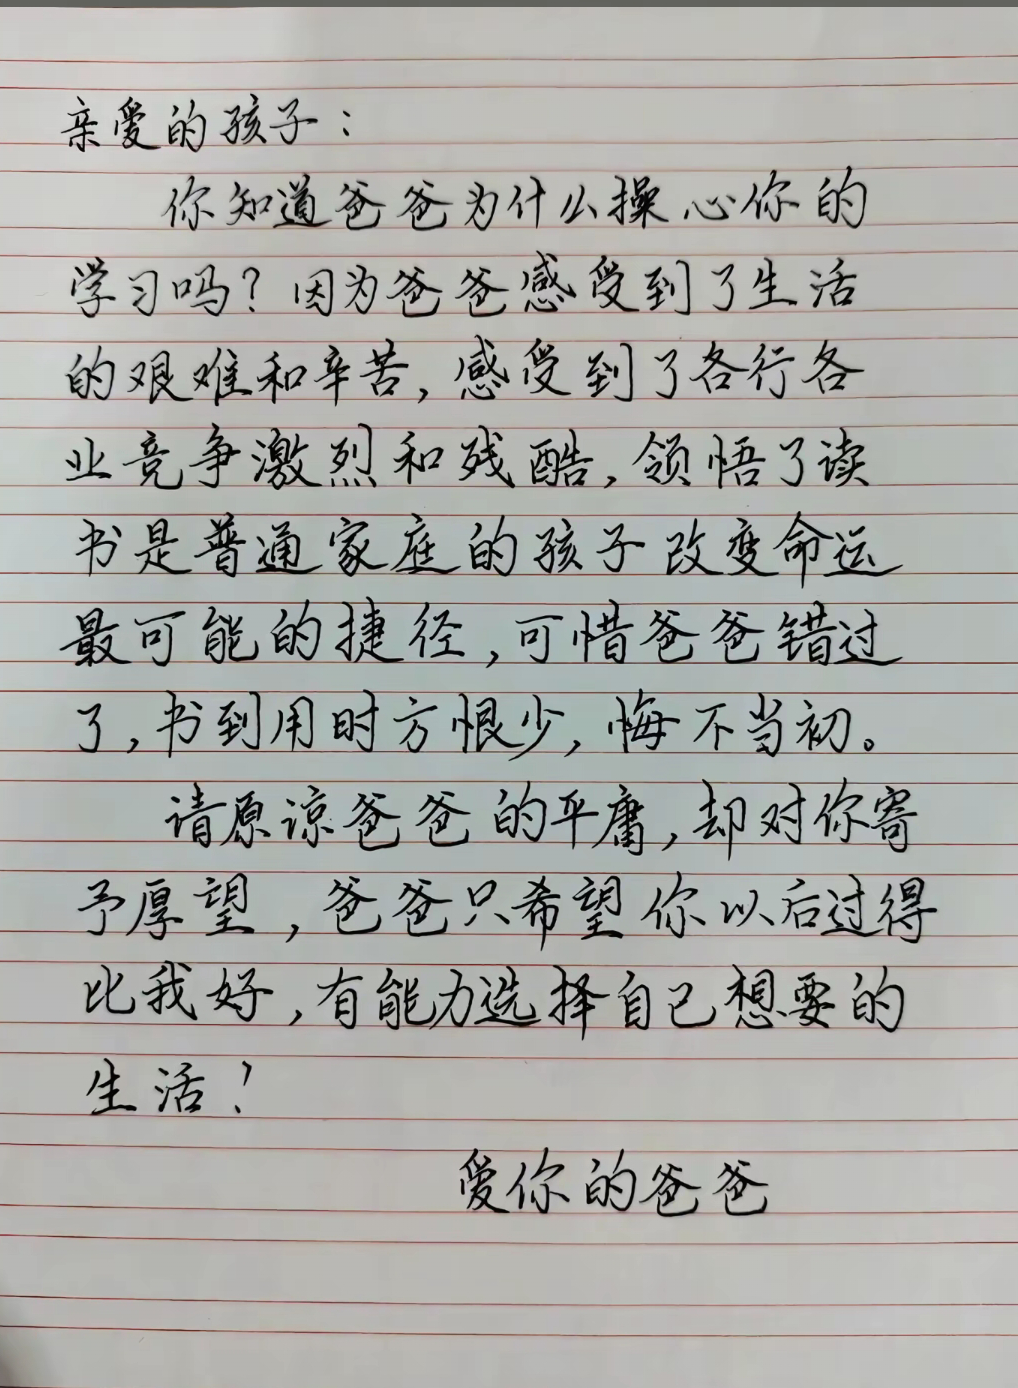 亲爱的孩子：
你知道爸爸为什么操心你的
学习吗？因为爸爸感受到了生活
的艰难和辛苦，感受到了各行各
业竞争激烈和残酷，领悟了读
书是普通家庭的孩子改变命运
最可能的捷径，可惜爸爸错过
了，书到用时方恨少，悔不当初。
请原谅爸爸的平庸，却对你寄
予厚望，爸爸只希望你以后过得
比我好，有能力选择自己想要的
生活！
爱你的爸爸